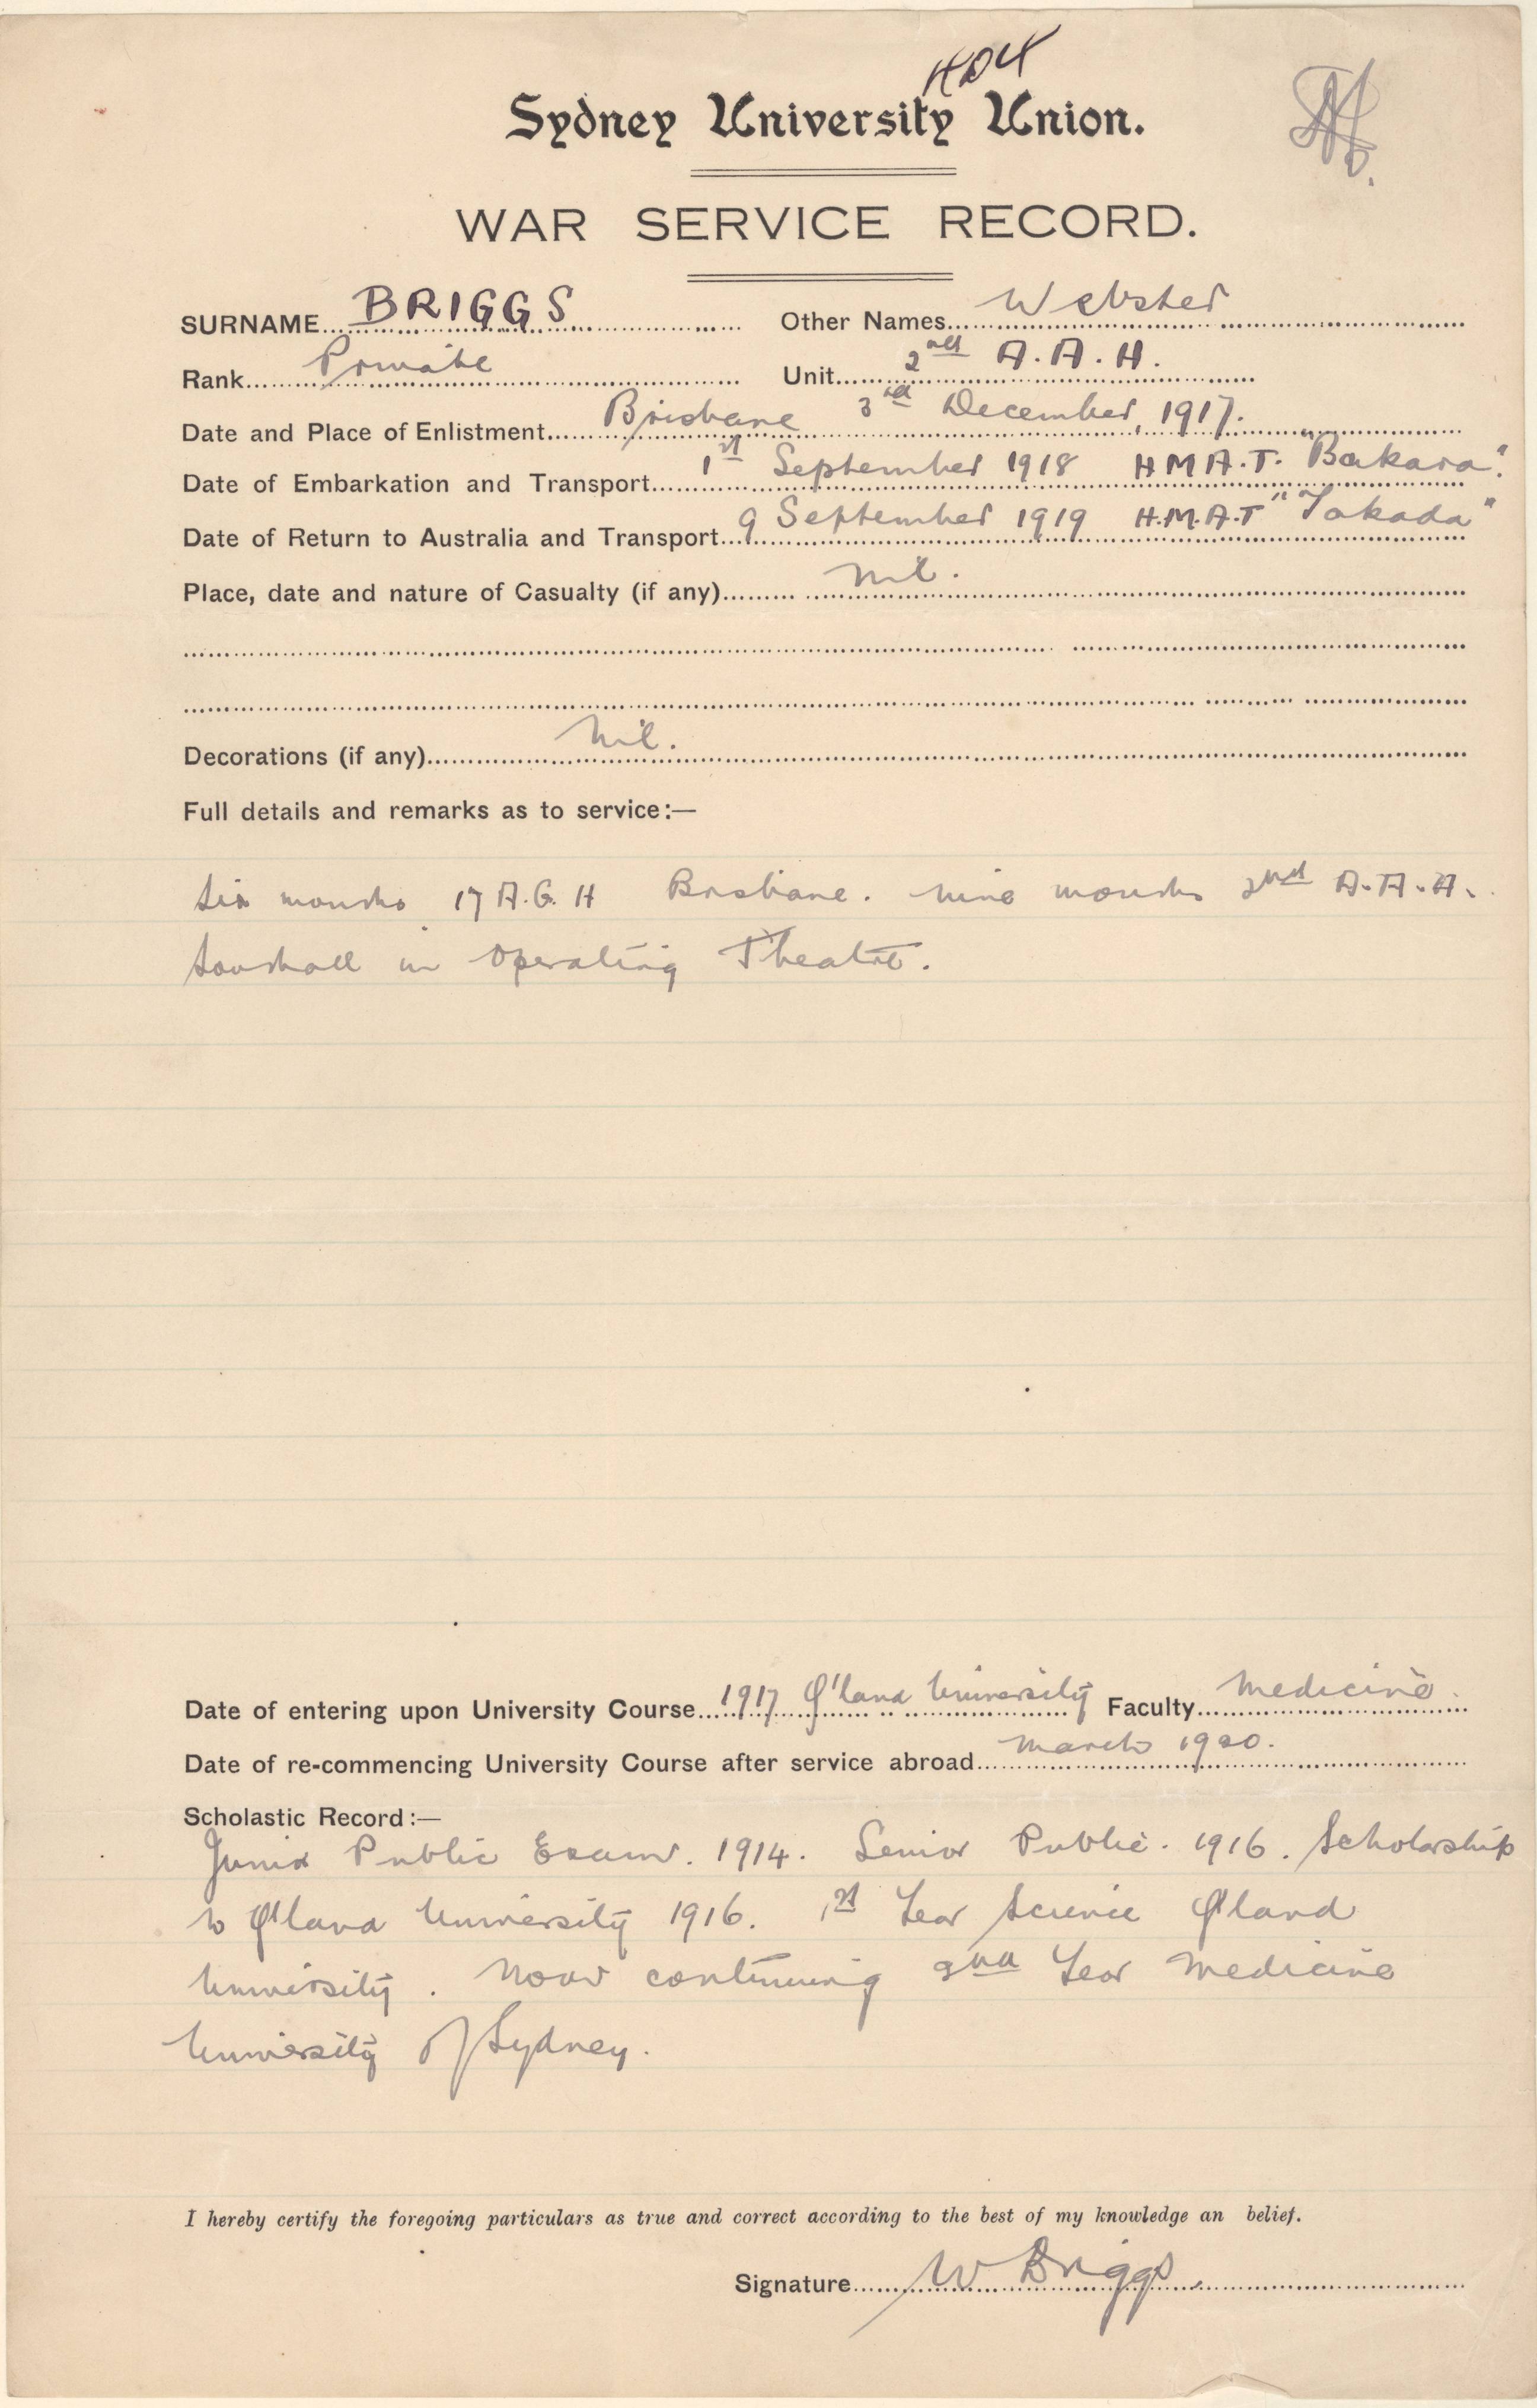 Sydney University Union.
WAR SERVICE RECORD.
SURNAME BRIGGS Other Names Webster
Rank Private Unit 2nd A.A.H.
Date and Place of Enlistment Brisbane 3rd December, 1917.
Date of Embarkation and Transport 1st September 1918 H.M.A.T. "Bakara".
Date of Return to Australia and Transport 9 September 1919 H.M.A.T "Takada"
Place, date and nature of Casualty (if any) Nil.
Decorations (if any) Nil.
Full details and remarks as to service:—
Six months 17 A.G.H Brisbane. Nine months 2nd A.A.H.
Southall in Operating Theatre.
Date of entering upon University Course 1917 Q'land University Faculty Medicine.
Date of re-commencing University Course after service abroad March 1920.
Scholastic Record:—
Junior Public Exam. 1914. Senior Public. 1916. Scholarship
to Q'land University 1916. 1st Year Science Q'land
University. Now continuing 2nd Year Medicine
University of Sydney.
I hereby certify the foregoing particulars as true and correct according to the best of my knowledge an belief.
Signature W Briggs.